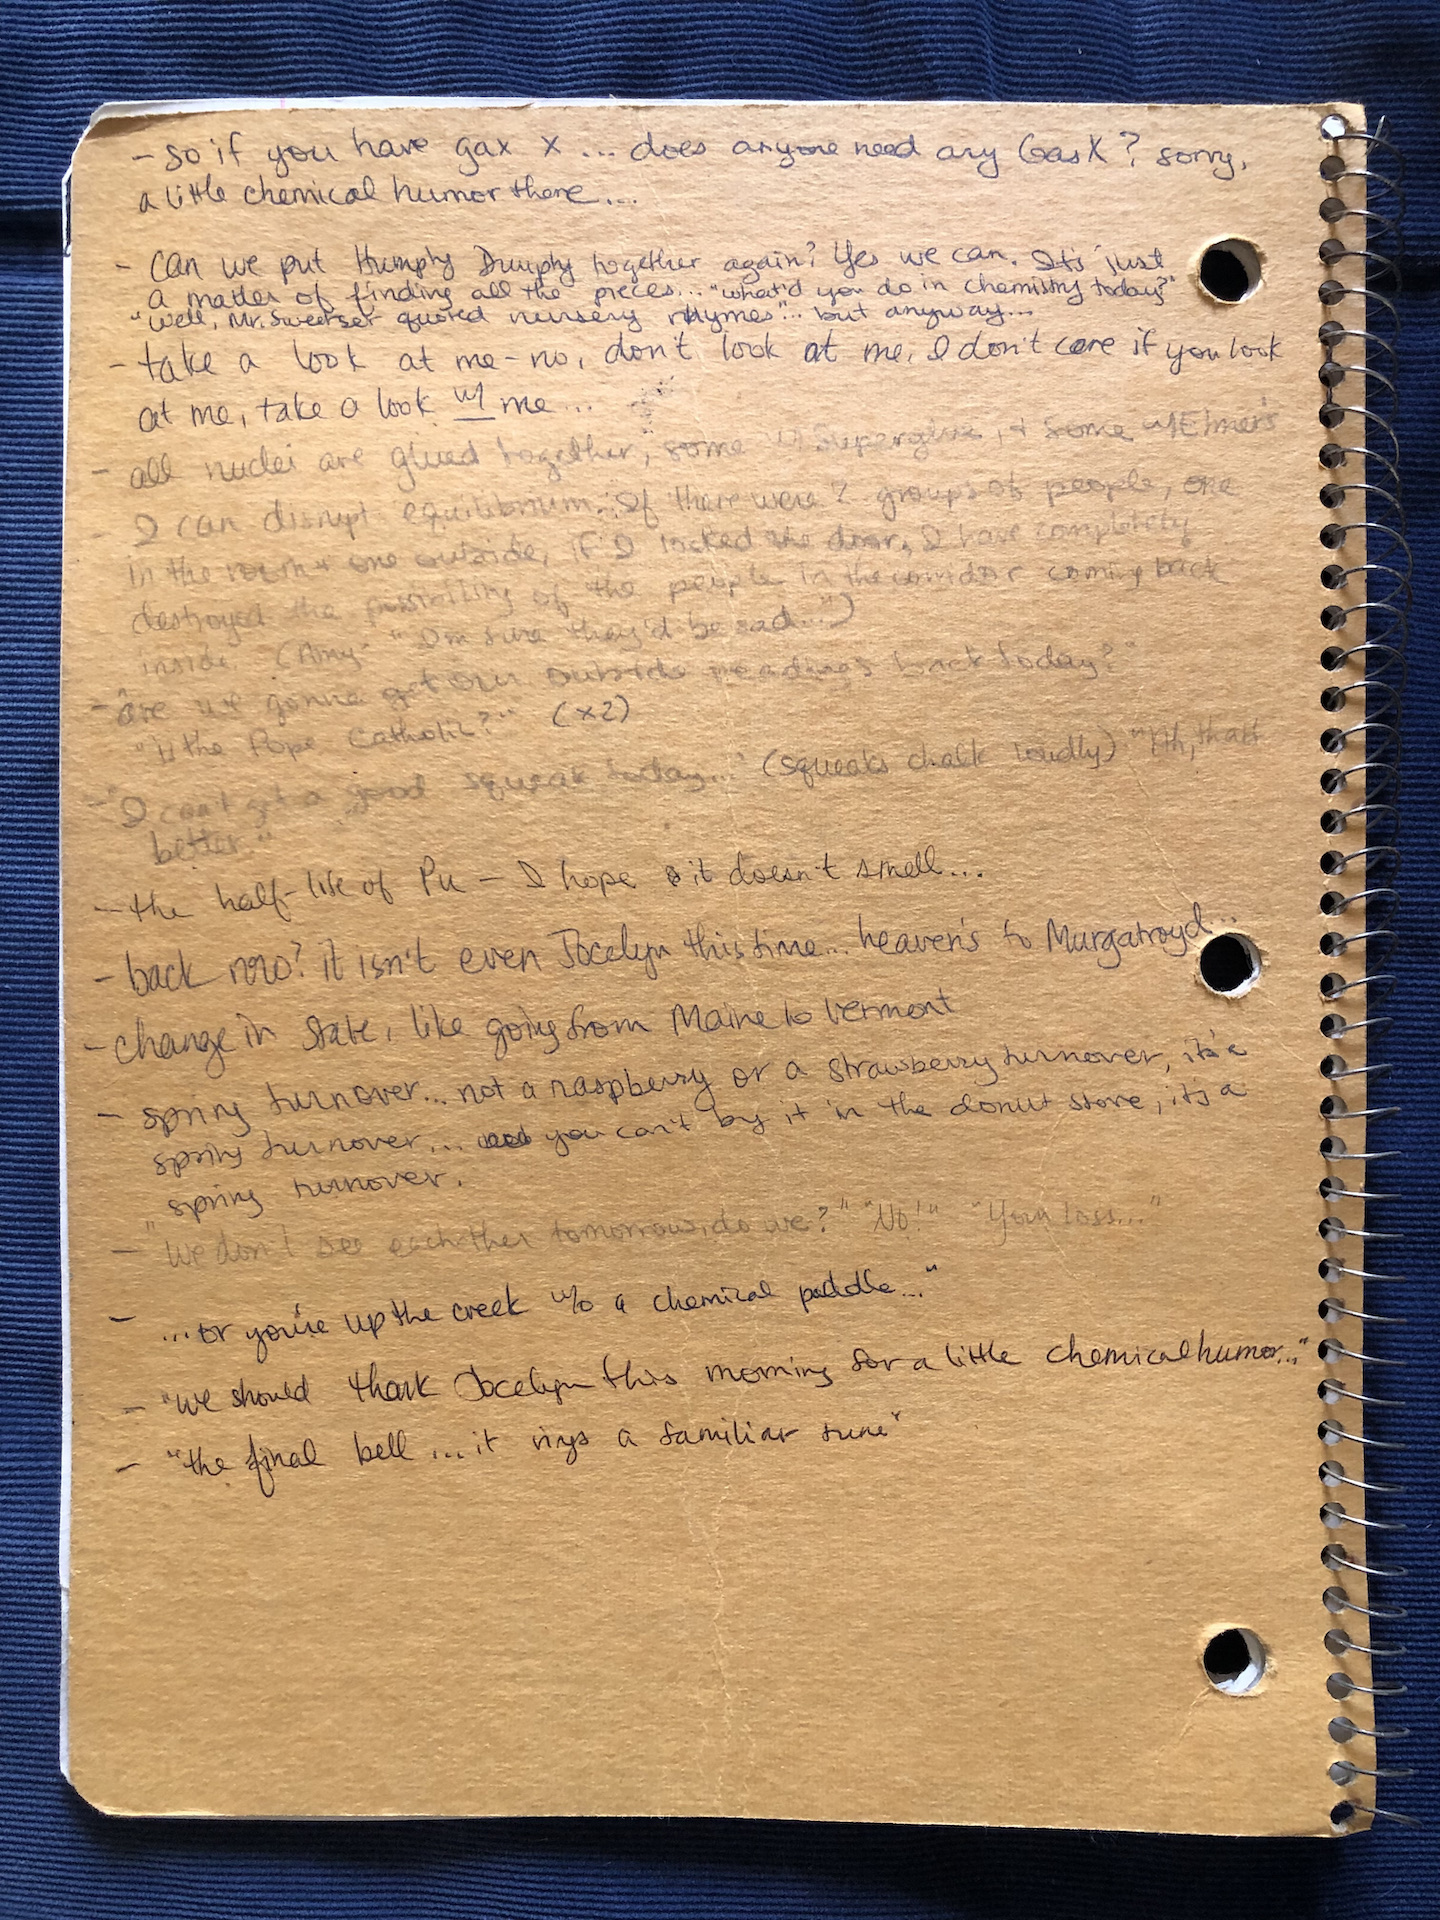 - so if you have gax x ... does anyone need any GasX? sorry,
a little chemical humor there...
- can we put Humpty Dumpty together again? Yes we can. It's just
a matter of finding all the pieces... "what'd you do in chemistry today?"
"Well, Mr. Sweetser quoted nursery rhymes"... but anyway...
- take a look at me - no, don't look at me, I don't care if you look
at me, take a look w/ me...
- all nuclei are glued together, some w/ Superglue, + some w/ Elmer's
- I can disrupt equilibrium. If there were 2 groups of people, one
in the room + one outside, if I locked the door, I have completely
destroyed the possibility of the people in the corridor coming back
inside. (Amy "I'm sure they'd be sad...")
- "are we gonna get our outside readings back today?"
"is the Pope Catholic?" (x2)
- "I can't get a good squeak today..." (squeaks chalk loudly) "Ah, that's
better."
- the half-life of Pu - I hope it doesn't smell...
- back now? it isn't even Jocelyn this time... heaven's to Murgatroyd...
- change in state, like going from Maine to Vermont
- spring turnover... not a raspberry or a strawberry turnover, it's a
spring turnover... you can't by it in the donut store, it's a
spring turnover.
- "We don't see each other tomorrow, do we?" "No!" "Your loss..."
- ...or you're up the creek w/o a chemical paddle..."
- "we should thank Jocelyn this morning for a little chemical humor..."
- "the final bell ... it rings a familiar tune"